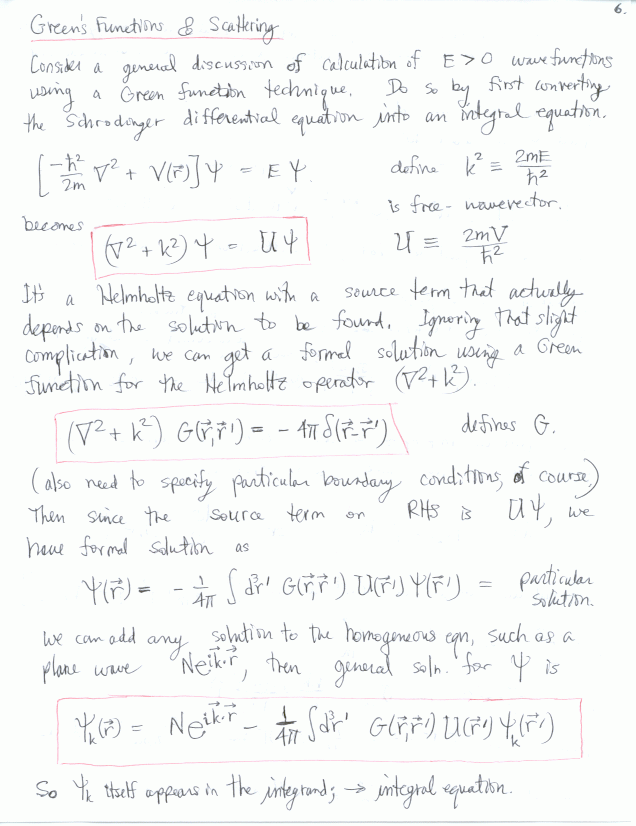 6.
Green's Functions & Scattering
Consider a general discussion of calculation of E > 0 wavefunctions
using a Green function technique. Do so by first converting
the Schrodinger differential equation into an integral equation.
[-ħ²/2m ∇² + V(r⃗)] ψ = E ψ. define k² ≡ 2mE/ħ²
is free-wavevector.
becomes (∇² + k²) ψ = U ψ U ≡ 2mV/ħ²
It's a Helmholtz equation with a source term that actually
depends on the solution to be found. Ignoring that slight
complication, we can get a formal solution using a Green
function for the Helmholtz operator (∇² + k²).
(∇² + k²) G(r⃗,r⃗') = - 4π δ(r⃗-r⃗') defines G.
(also need to specify particular boundary conditions, of course)
Then since the source term on RHS is Uψ, we
have formal solution as
ψ(r⃗) = - 1/4π ∫ d³r' G(r⃗,r⃗') U(r⃗') ψ(r⃗') = particular solution.
We can add any solution to the homogeneous eqn, such as a
plane wave Ne^{ik⃗·r⃗}, then general soln. for ψ is
ψₖ(r⃗) = N e^{ik⃗·r⃗} - 1/4π ∫ d³r' G(r⃗,r⃗') U(r⃗') ψₖ(r⃗')
So ψₖ itself appears in the integrand; → integral equation.